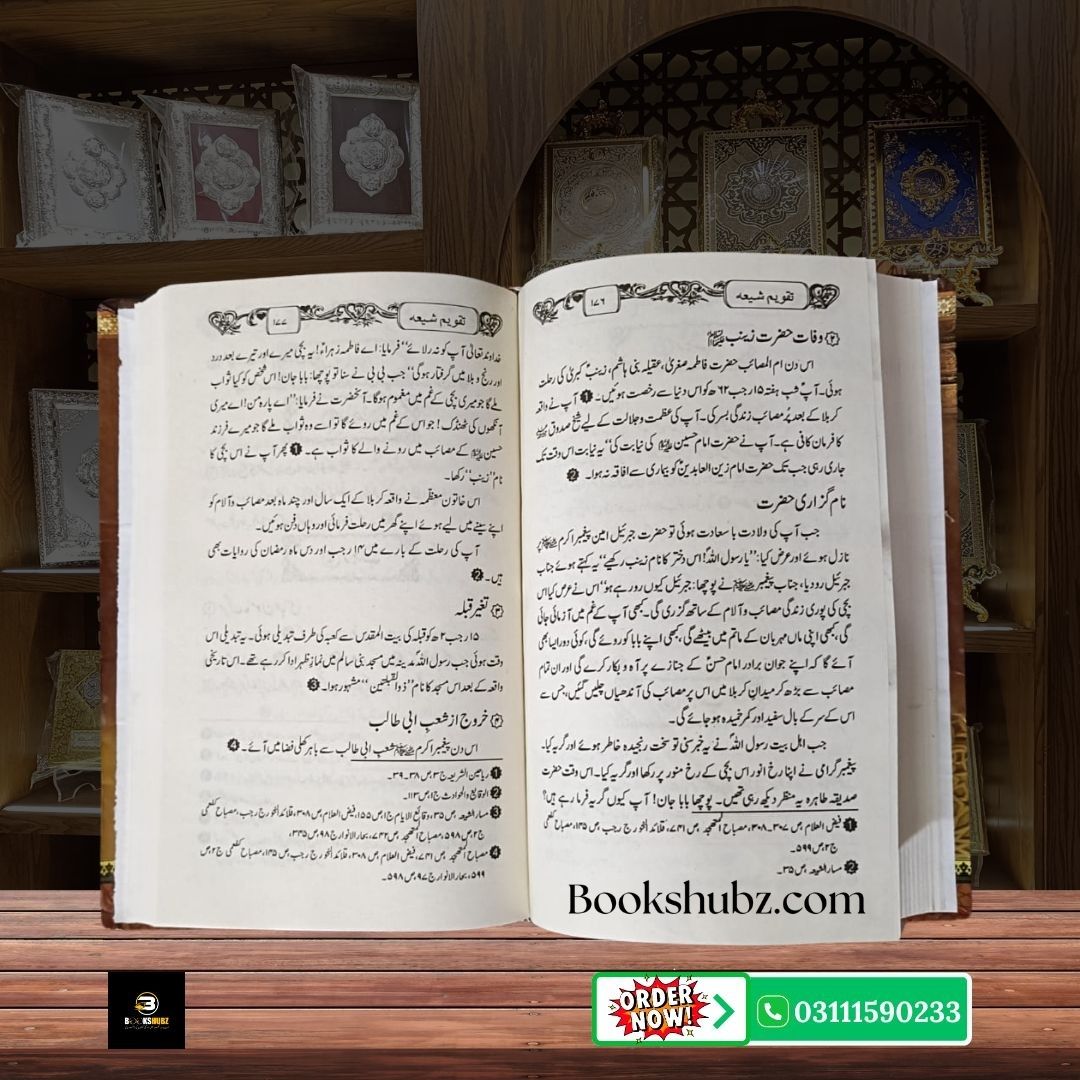 تقویم شیعہ
۱۷۶
۲ وفات حضرت زینب
اس دن ام المصائب حضرت فاطمہ صغریٰ، عقیلہ بنی ہاشم، زینب کبریٰ کی رحلت
ہوئی۔ آپ شب ہفتہ ۱۵ رجب ۶۲ھ کو اس دنیا سے رخصت ہوئیں۔ 1 آپ نے واقعہ
کربلا کے بعد پُر مصائب زندگی بسر کی۔ آپ کی عظمت و جلالت کے لیے شیخ صدوق
کا فرمان کافی ہے۔ آپ نے حضرت امام حسین کی نیابت کی ‘‘یہ نیابت اس وقت تک
جاری رہی جب تک حضرت امام زین العابدین کو بیماری سے افاقہ نہ ہوا۔ 2
نام گزاری حضرت
جب آپ کی ولادت باسعادت ہوئی تو حضرت جبرئیل امین پیغمبر اکرم ﷺ پر
نازل ہوئے اور عرض کیا: ‘‘یا رسول اللہ! اس دختر کا نام زینب رکھیے’’ یہ کہتے ہوئے جناب
جبرئیل رو دیا، جناب پیغمبر ﷺ نے پوچھا: جبرئیل کیوں رو رہے ہو‘‘ اس نے عرض کیا اس
بچی کی پوری زندگی مصائب و آلام کے ساتھ گزری گی۔ کبھی آپ کے غم میں آزمائی جائی
گی، کبھی اپنی ماں مہربان کے ماتم میں بیٹھے گی، کبھی اپنے بابا کو روئے گی، کوئی دور ایسا بھی
آئے گا کہ اپنے جوان برادر امام حسن کے جنازے پر آہ و بکار کرے گی اور ان تمام
مصائب سے بڑھ کر میدان کربلا میں اس پر مصائب کی آندھیاں چلیں گئیں، جس سے
اس کے سر کے بال سفید اور کمر خمیدہ ہو جائے گی۔
جب اہل بیت رسول اللہ نے یہ خبر سنی تو سخت رنجیدہ خاطر ہوئے اور گریہ کیا۔
پیغمبر گرامی نے اپنا رخ انور اس بچی کے رخ منور پر رکھا اور گریہ کیا۔ اس وقت حضرت
صدیقہ طاہرہ یہ منظر دیکھ رہی تھیں۔ پوچھا بابا جان! آپ کیوں گریہ فرما رہے ہیں؟
1 فیض العلام ص ۳۰۷۔۳۰۸، مصباح المتہجد ص ۷۴۱، قلائد النحور ج رجب ص ۱۳۵، مصباح کفعمی
ج ۲ ص ۵۹۹۔
2 مسار الشیعہ ص ۳۵۔
تقویم شیعہ
۱۷۷
خداوند تعالیٰ آپ کو نہ رلائے‘‘ فرمایا: اے فاطمہ زہراء! یہ بچی میرے اور تیرے بعد درد
اور رنج و بلا میں گرفتار ہوگی‘‘ جب بی بی نے سنا تو پوچھا: بابا جان! اس شخص کو کیا ثواب
ملے گا جو میری بچی کے غم میں مغموم ہوگا۔ آنحضرت نے فرمایا: ‘‘اے پارہ من! اے میری
آنکھوں کی ٹھنڈک! جو اس کے غم میں روئے گا تو اسے وہ ثواب ملے گا جو میرے فرزند
حسین کے مصائب میں رونے والے کا ثواب ہے۔ 1 پھر آپ نے اس بچی کا
نام ‘‘زینب’’ رکھا۔
اس خاتون معظمہ نے واقعہ کربلا کے ایک سال اور چند ماہ بعد مصائب و آلام کو
اپنے سینے میں لیے ہوئے اپنے گھر میں رحلت فرمائی اور وہاں دفن ہوئیں۔
آپ کی رحلت کے بارے میں ۱۴ رجب اور دس ماہ رمضان کی روایات بھی
ہیں۔ 2
۳ تغیر قبلہ
۱۵ رجب ۲ھ کو قبلہ کی بیت المقدس سے کعبہ کی طرف تبدیلی ہوئی۔ یہ تبدیلی اس
وقت ہوئی جب رسول اللہ مدینہ میں مسجد بنی سالم میں نماز ظہر ادا کر رہے تھے۔ اس تاریخی
واقعہ کے بعد اس مسجد کا نام ‘‘ذوالقبلتین’’ مشہور ہوا۔ 3
۴ خروج از شعب ابی طالب
اس دن پیغمبر اکرم ﷺ شعب ابی طالب سے باہر کھلی فضا میں آئے۔ 4
1 ریاحین الشریعہ ج ۳ ص ۳۸۔۳۹۔
2 الوقایع والحوادث ج ۱ ص ۱۱۳۔
3 مسار الشیعہ ص ۳۵، وقائع الایام ج ۱ ص ۱۵۵، فیض العلام ص ۳۰۸، قلائد النحور ج رجب، مصباح کفعمی
ج ۲ ص ۵۹۸، مصباح المتہجد ص ۷۴۲، بحار الانوار ج ۹۸ ص ۳۳۵۔
4 مصباح المتہجد ص ۷۴۱، فیض العلام ص ۳۰۸، قلائد النحور ج رجب ص ۱۳۵، مصباح کفعمی ج ۲ ص
۵۹۹، بحار الانوار ج ۹۷ ص ۵۹۸۔
Bookshubz.com
BOOKSHUBZ
ORDER
NOW!
03111590233